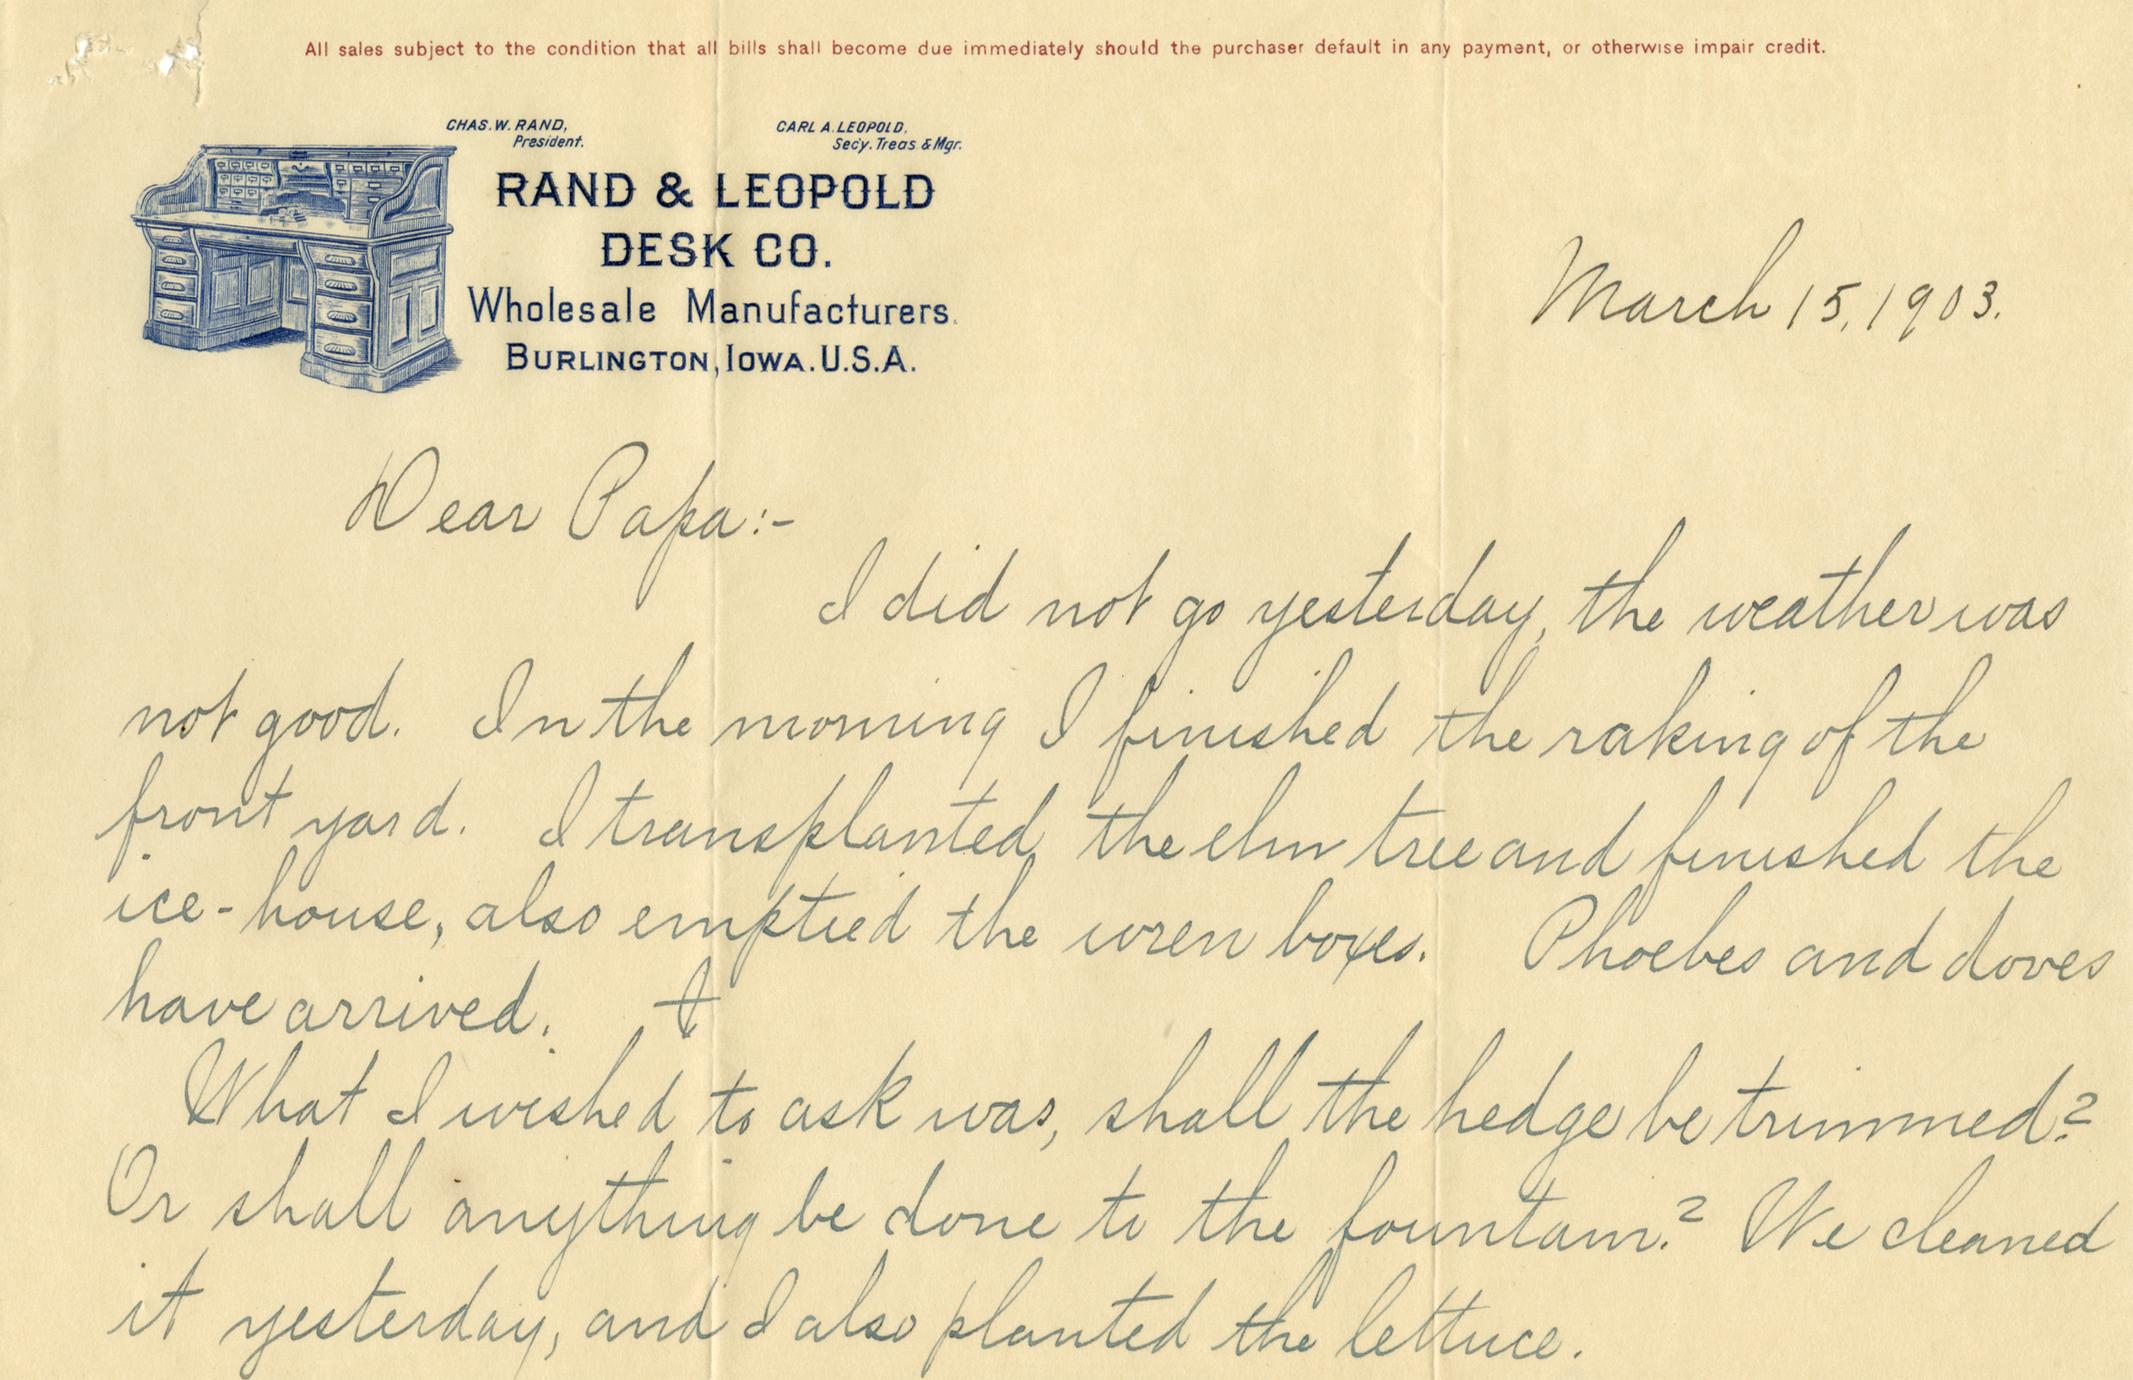 All sales subject to the condition that all bills shall become due immediately should the purchaser default in any payment, or otherwise impair credit.
CHAS. W. RAND,
President.
CARL A. LEOPOLD,
Sec'y. Treas. & Mgr.
RAND & LEOPOLD
DESK CO.
Wholesale Manufacturers.
BURLINGTON, IOWA. U.S.A.
March 15, 1903.
Dear Papa:-
I did not go yesterday, the weather was
not good. In the morning I finished the raking of the
front yard. I transplanted the elm tree and finished the
ice-house, also emptied the wren boxes. Phoebes and doves
have arrived.
What I wished to ask was, shall the hedge be trimmed?
Or shall anything be done to the fountain? We cleaned
it yesterday, and I also planted the lettuce.